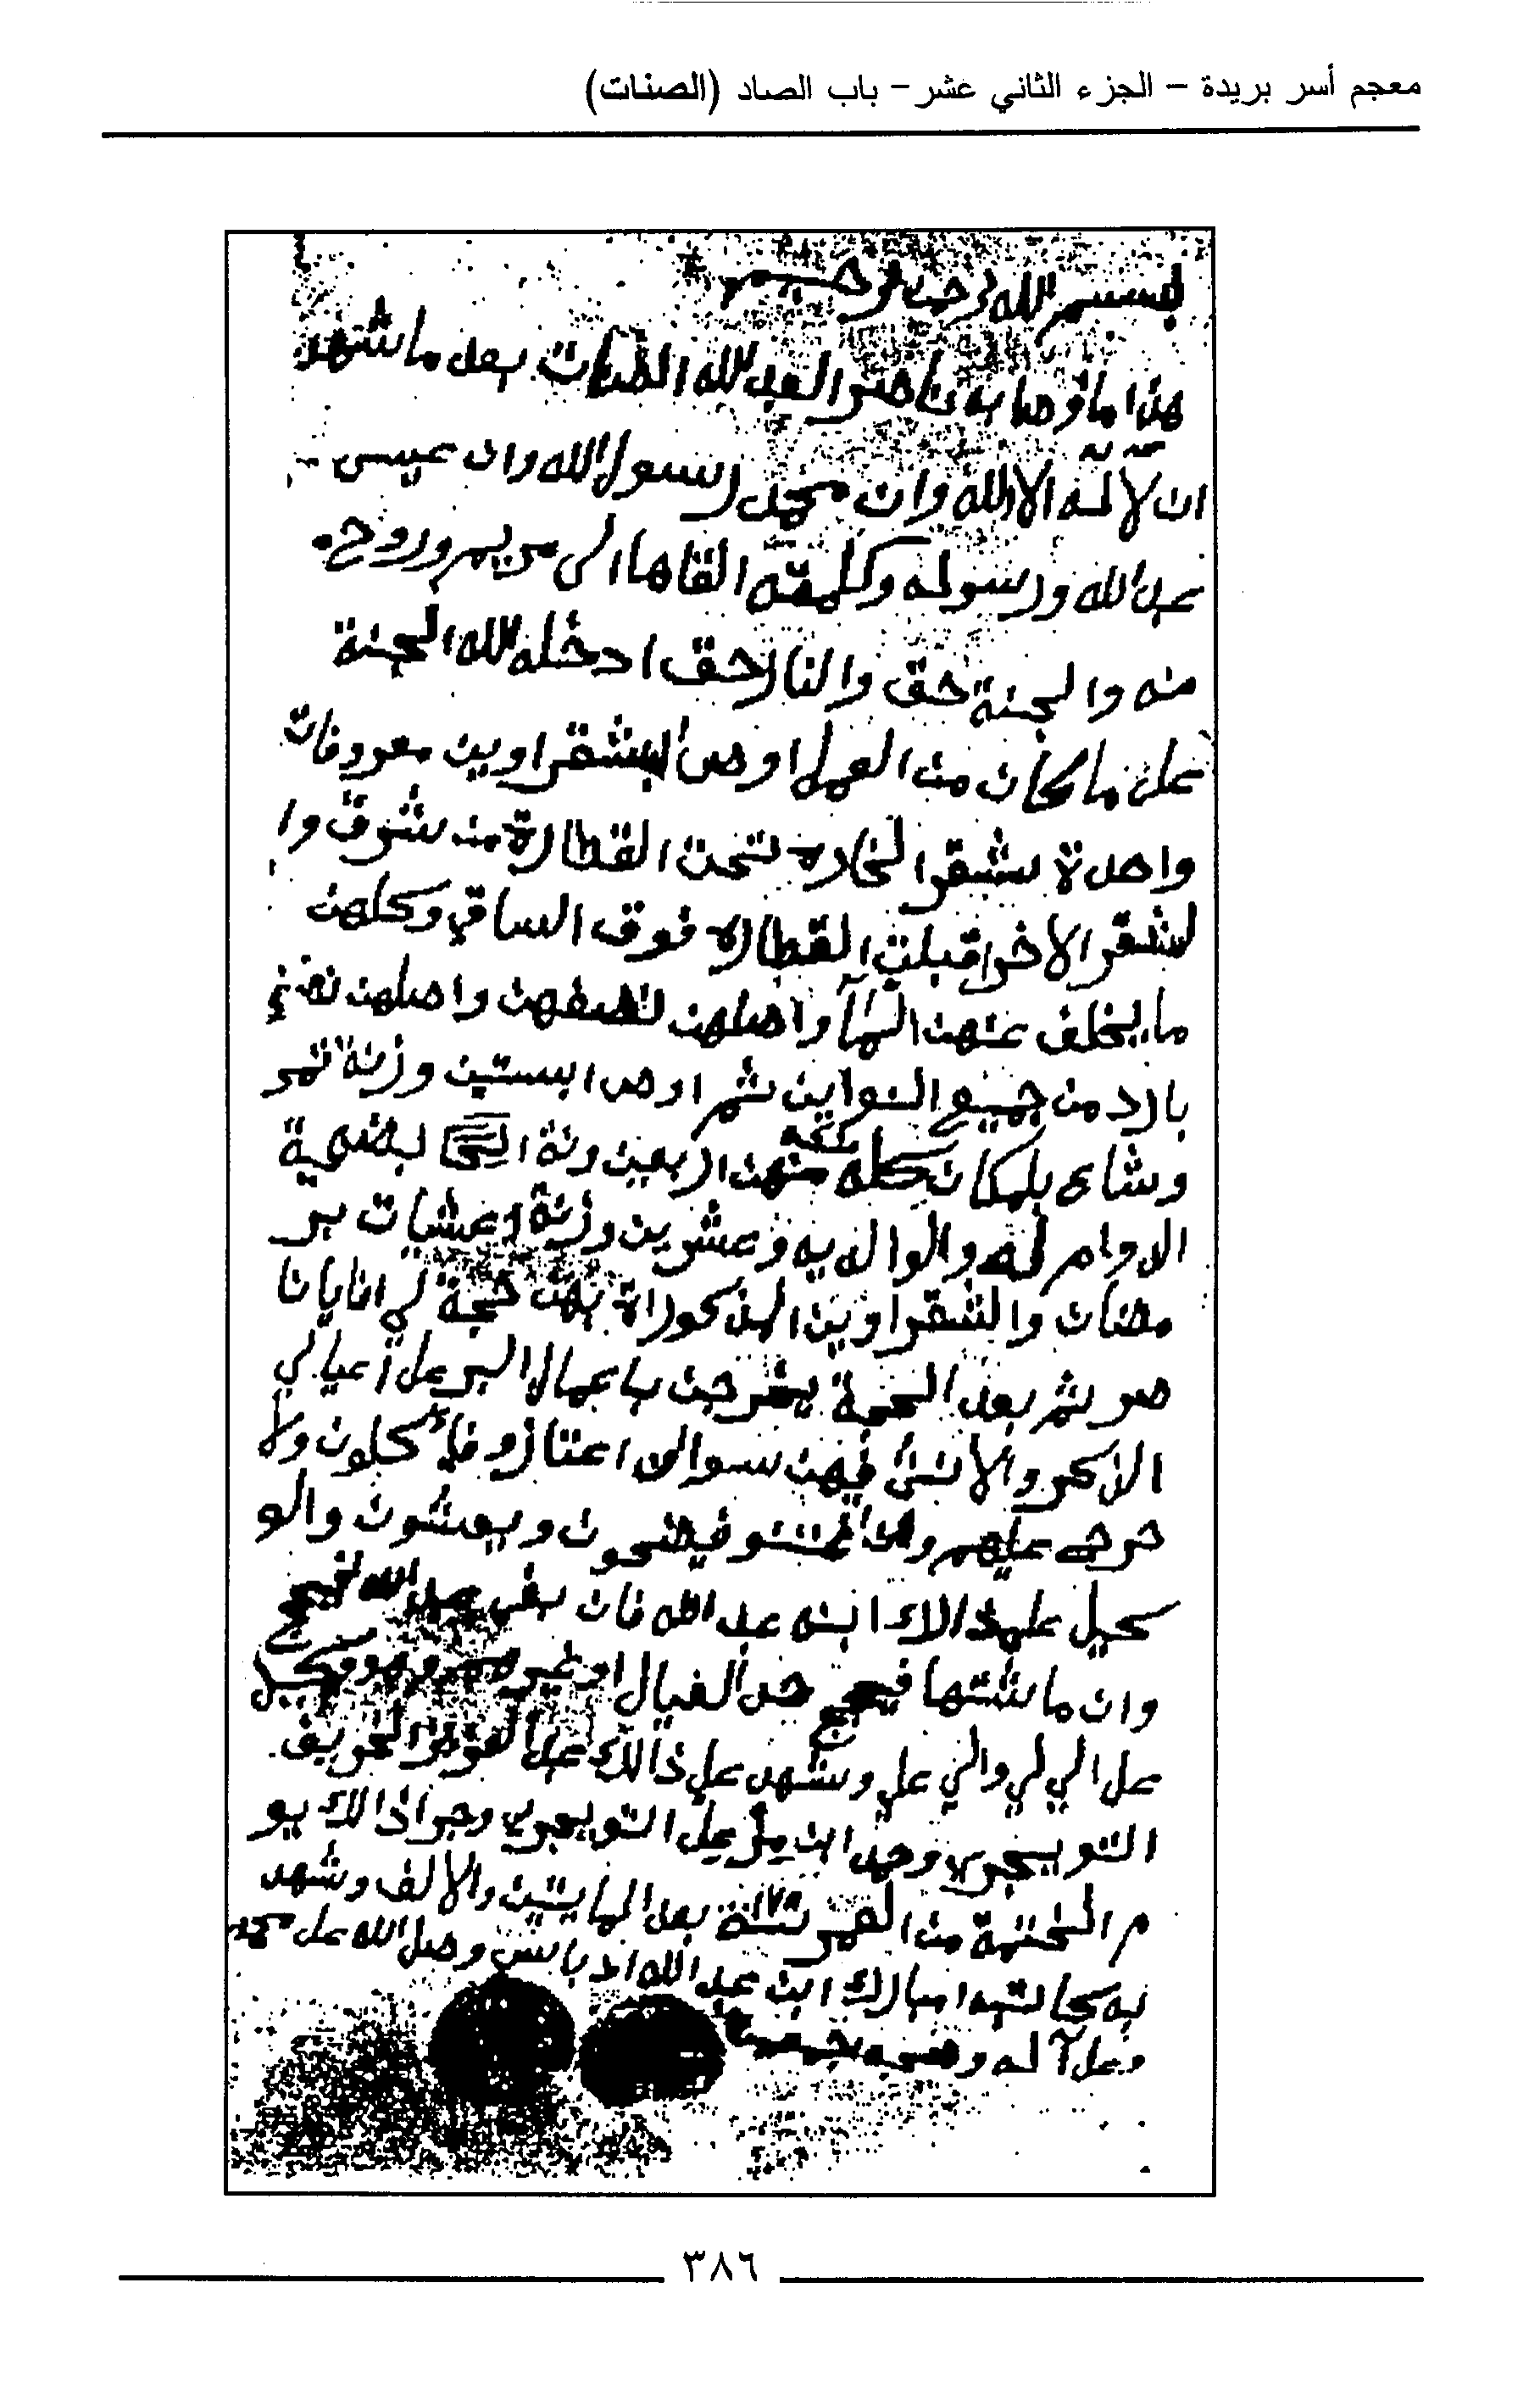 معجم أسر بريدة – الجزء الثاني عشر – باب الصاد (الصنات)
بسم الله الرحمن الرحيم
هذا ما اوصا به ناصر العبدالله الصنات بعد ما شهد
ان لا اله الا الله وان محمد رسول الله وان عيسى
عبد الله ورسوله وكلمته القاها الى مريم وروح
منه والجنة حق والنار حق ادخله الله الجنة
على ما كان من العمل اوصى بشقراوين معروفات
واحدة شقرا تحت القطارة من شرق وا
لشقر الاخرا قبلت القطاره فوق الساقي وكلهن
ما يخلف عنهن الما واصلهن نصفهن واصلهن
بارد من جميع النوايب ثم اوصى ابستين وزنة تمر
وشاى بلمكان منهن اربعين وزنة
الدوام له والوالديه وعشرين وزنة عشيات بر
مضان والشقراوين المذكورات بهن حجة لي انا يا نا
صر ثم بعد الحجة يخرجن باعمال البر على اعيالي
الذكر والانثى فيهن سوا الى اعتازو فياكلون ولا
حرج عليهم والى فيضحون ويعشون والو
كيل على ذالك ابنه عبد الله فان
وان ما اشتها حدى العيال او وهو وكيل
على الي لي والي علي وشهد على ذالك
التويجري وحمد ابن علي التويجري وجرا ذالك يو
م الختمة من بعد المايتين والالف وشهد
به كاتبه امبارك ابن عبد الله ادباسي وصلى الله على محمد
وعلى آله وصحبه
٣٨٦